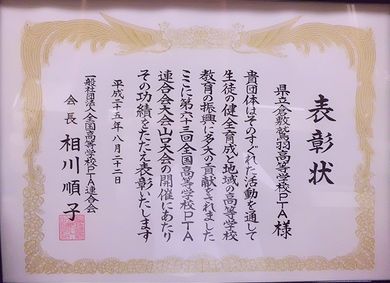 表彰状
県立倉敷鷲羽高等学校PTA 様
貴団体はそのすぐれた活動を通して
生徒の健全育成と地域の高等学校
教育の振興に多大の貢献をされました
ここに第六十三回全国高等学校PTA
連合会大会山口大会の開催にあたり
その功績をたたえ表彰いたします
平成二十五年八月二十二日
一般社団法人全国高等学校PTA連合会
会長 相川順子